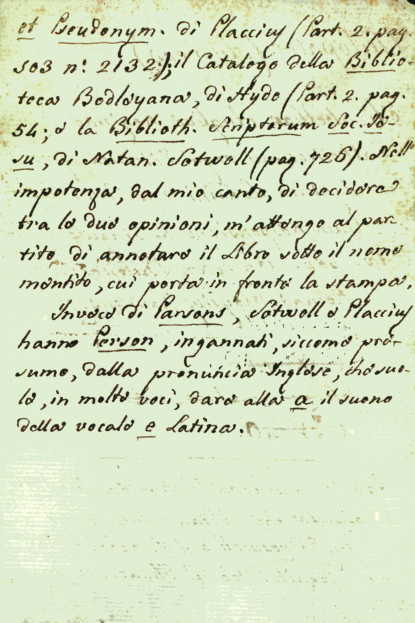 et Pseudonym. di Placcius (Part. 2. pag.
503 n.° 2132.), il Catalogo della Biblio-
teca Bodleyana, di Hyde (Part. 2. pag.
54; e la Biblioth. Scriptorum Soc. Je-
su, di Natan. Sotwell (pag. 726). Nell'
impotenza, dal mio canto, di decidere
tra le due opinioni, m'attengo al par-
tito di annotare il Libro sotto il nome
mentito, cui porta in fronte la stampa.
Invece di Parsons, Sotwell e Placcius
hanno Person, ingannati, siccome pre-
sumo, dalla pronuncia Inglese, che suo-
le, in molte voci, dare alla a il suono
della vocale e Latina.